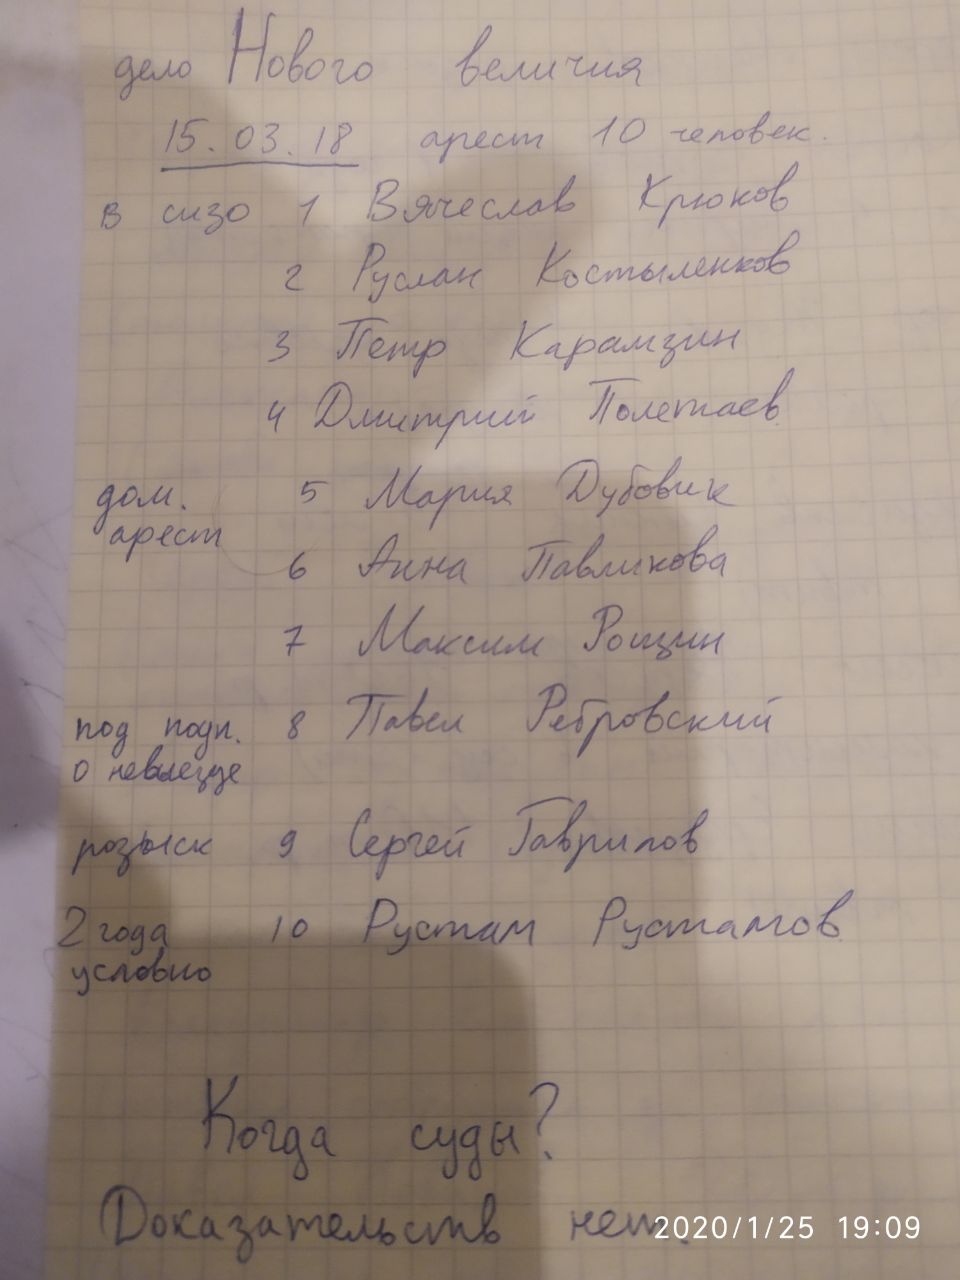 дело Нового величия
15.03.18 арест 10 человек.
в сизо 1 Вячеслав Крюков
2 Руслан Костыленков
3 Петр Карамзин
4 Дмитрий Полетаев
дом. 5 Мария Дубовик
арест
6 Анна Павликова
7 Максим Рощин
под подп. 8 Павел Ребровский
о невыезде
розыск 9 Сергей Гаврилов
2 года 10 Рустам Рустамов
условно
Когда суды?
Доказательств нет.
2020/1/25 19:09